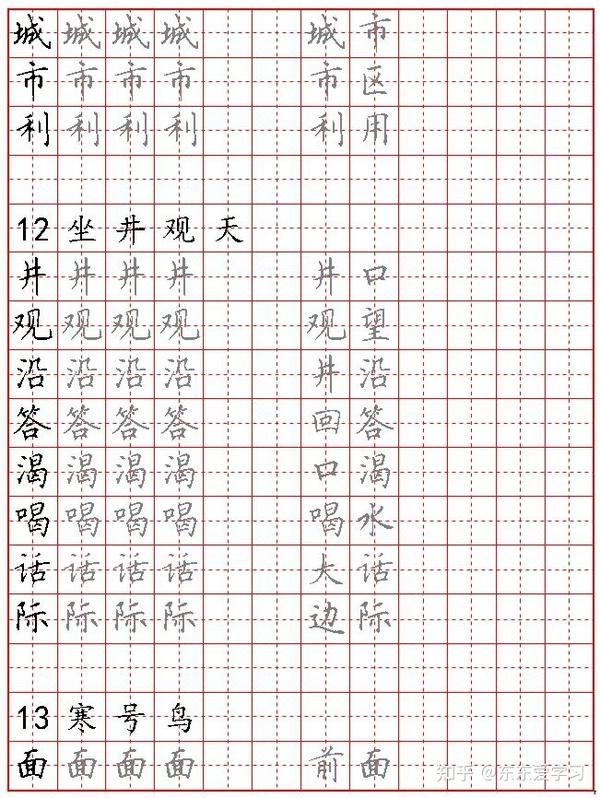 城城城城 城市
市市市市 市区
利利利利 利用
12 坐井观天
井井井井 井口
观观观观 观望
沿沿沿沿 井沿
答答答答 回答
渴渴渴渴 口渴
喝喝喝喝 喝水
话话话话 大话
际际际际 边际
13 寒号鸟
面面面面 前面
知乎 @东东爱学习